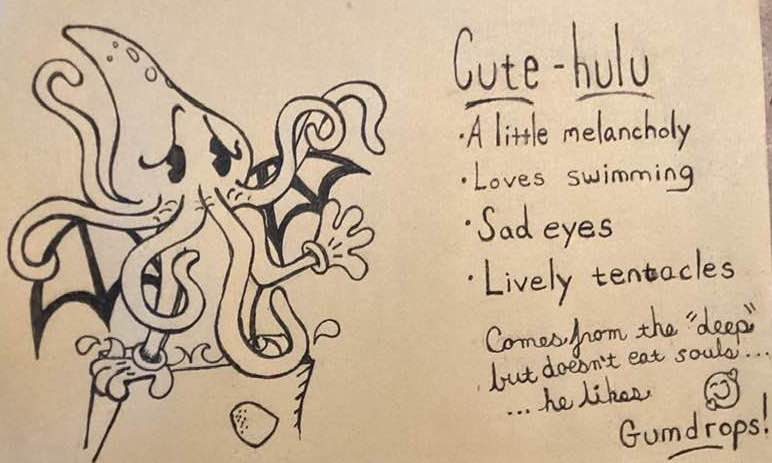 Cute-hulu
·A little melancholy
·Loves swimming
·Sad eyes
·Lively tentacles
Comes from the "deep"
but doesn't eat souls...
...he likes
Gumdrops!